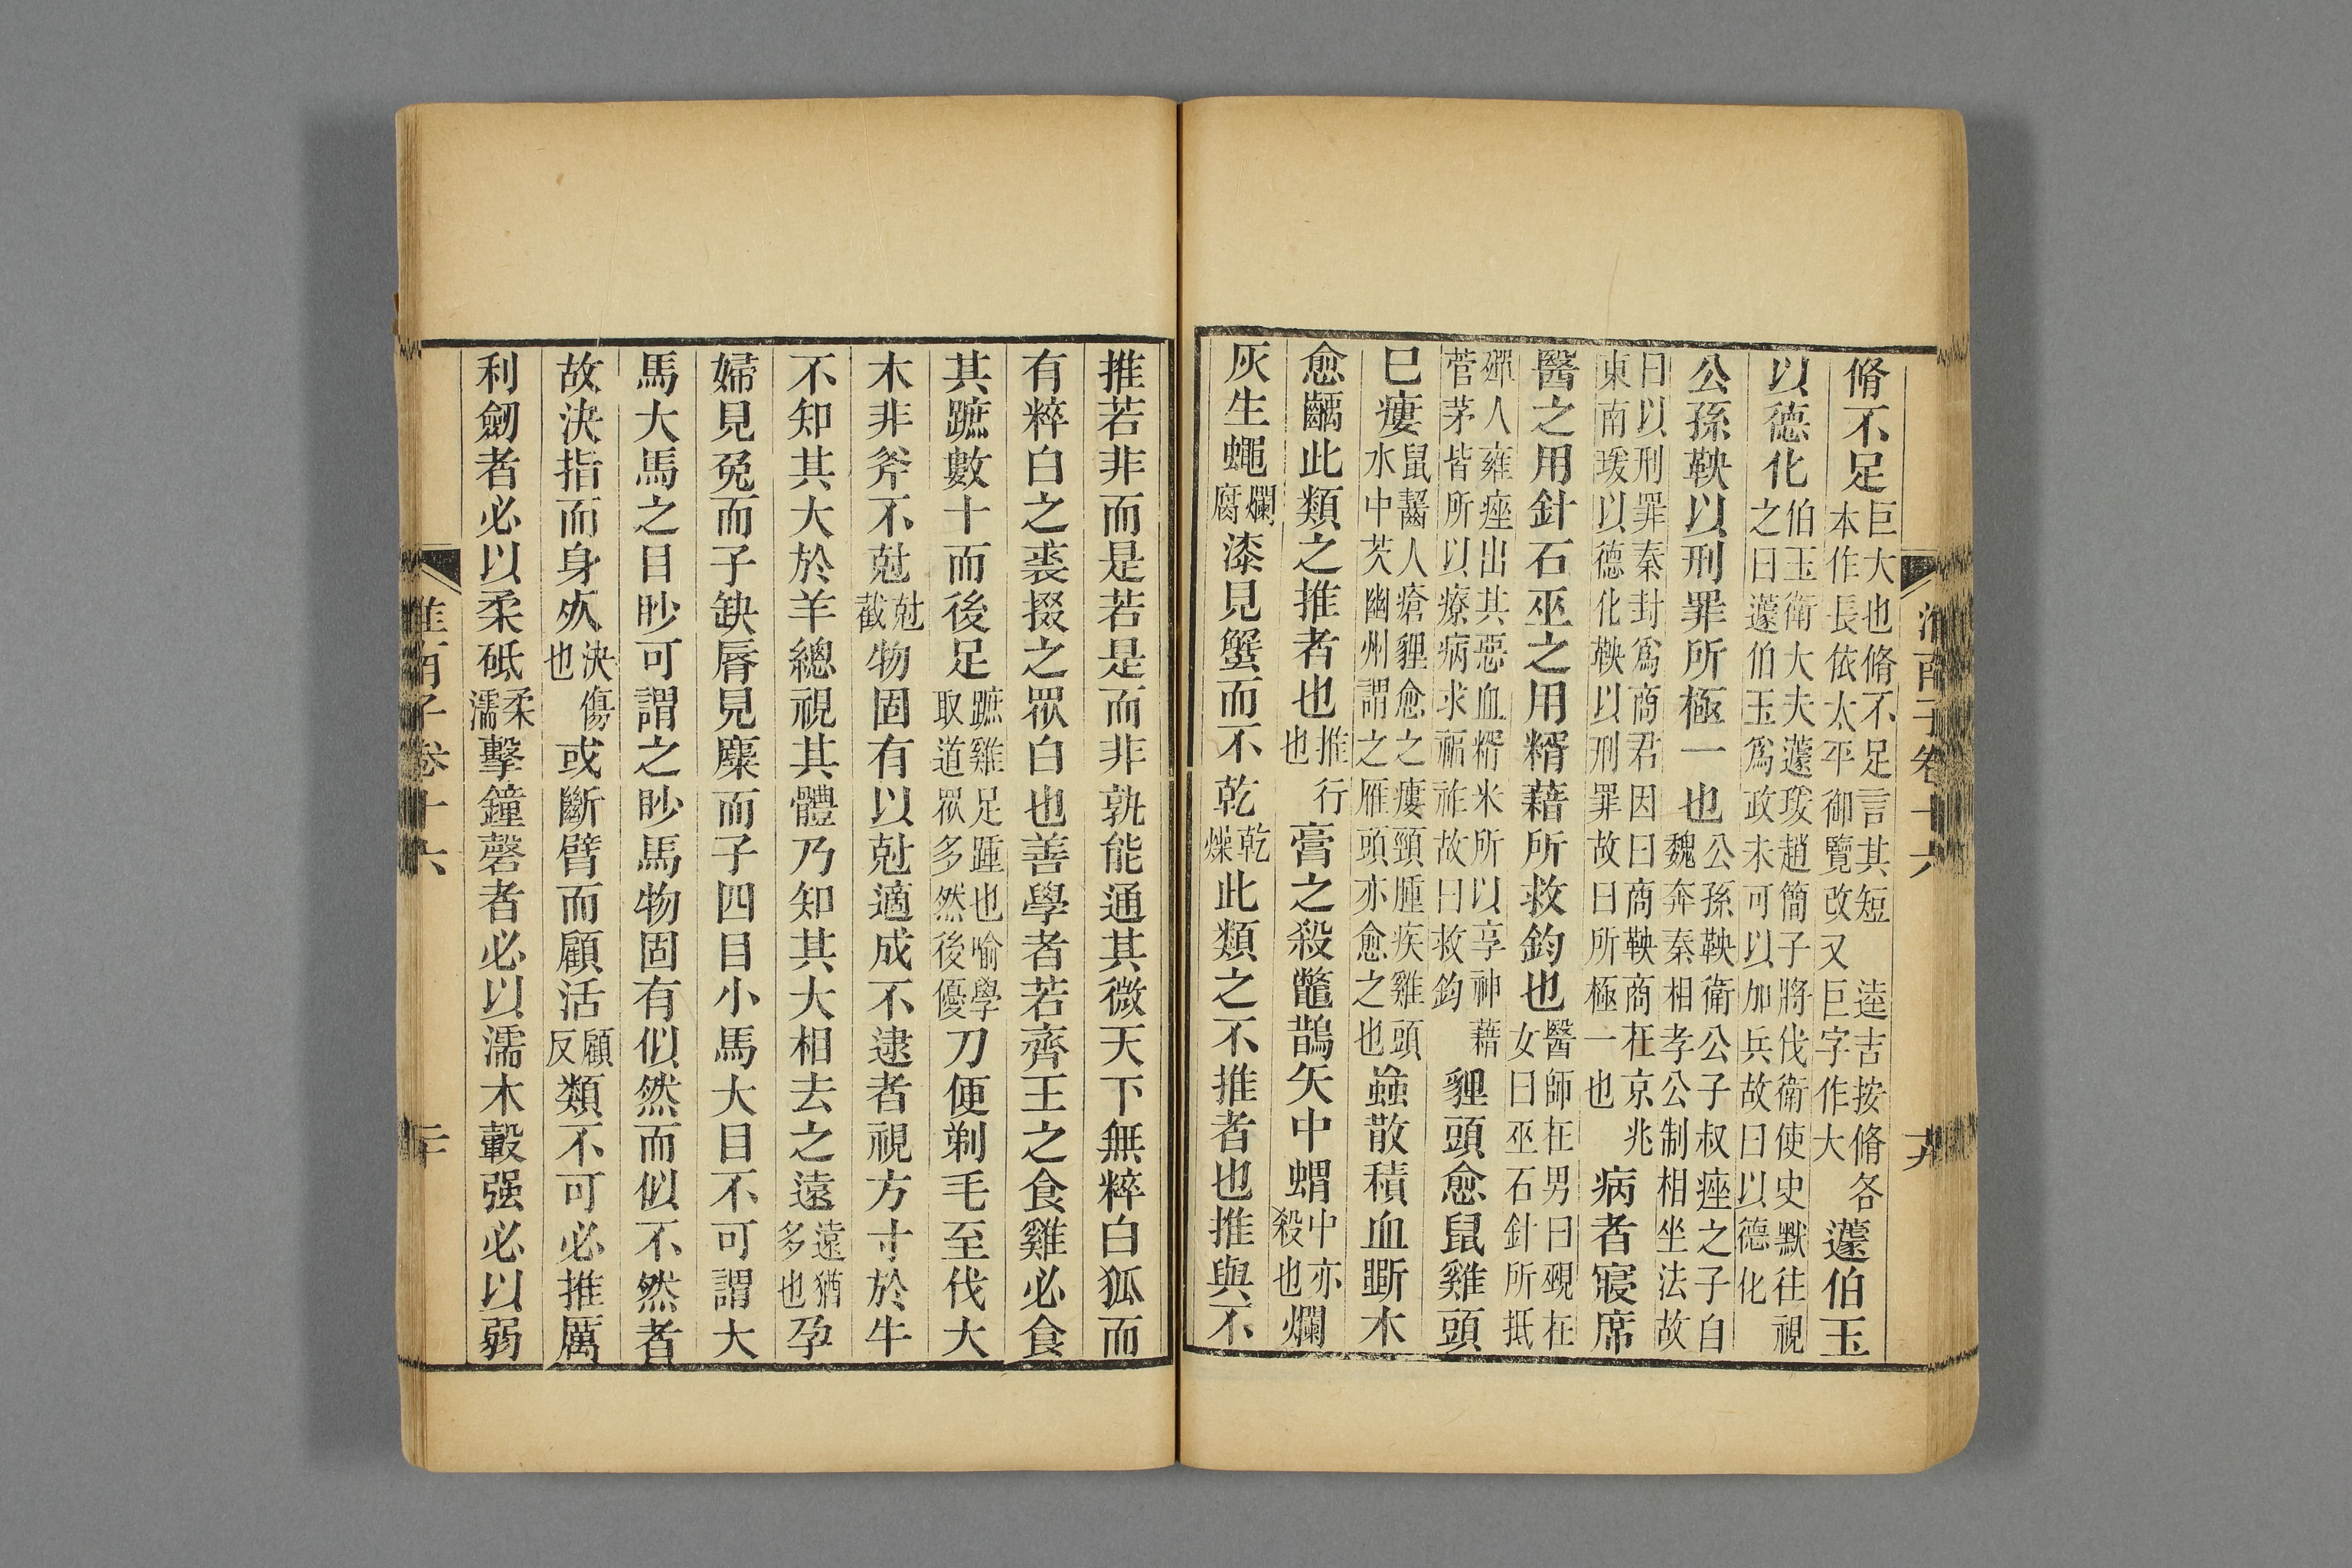 淮南子卷十六
九
脩不足巨大也脩不足言其短 逵吉按脩各本作長依太平御覽改又巨字作大蘧伯玉
以德化伯玉衛大夫蘧瑗趙簡子將伐衛使史默往視之曰蘧伯玉爲政未可以加兵故曰以德化
公孫鞅以刑罪所極一也公孫鞅衛公子叔痤之子自魏奔秦相孝公制相坐法故
曰以刑罪秦封爲商君因曰商鞅商在京兆東南瑗以德化鞅以刑罪故曰所極一也病者寢席
醫之用針石巫之用糈藉所救鈞也醫師在男曰覡在女曰巫石針所抵
殫人雍痤出其惡血糈米所以享神藉菅茅皆所以療病求福祚故曰救鈞貍頭愈鼠雞頭
已瘻鼠齧人瘡貍愈之瘻頸腫疾雞頭水中芡幽州謂之雁頭亦愈之也䖟散積血斲木
愈齲此類之推者也推行也膏之殺鼈鵲矢中蝟中亦殺也爛
灰生蠅爛腐漆見蟹而不乾乾燥此類之不推者也推與不
推若非而是若是而非孰能通其微天下無粹白狐而
有粹白之裘掇之眾白也善學者若齊王之食雞必食
其蹠數十而後足蹠雞足踵也喻學取道眾多然後優刀便剃毛至伐大
木非斧不尅尅截物固有以尅適成不逮者視方寸於牛
不知其大於羊總視其體乃知其大相去之遠遠猶多也孕
婦見兔而子缺脣見麋而子四目小馬大目不可謂大
馬大馬之目眇可謂之眇馬物固有似然而似不然者
故決指而身死決傷也或斷臂而顧活顧反類不可必推厲
利劒者必以柔砥柔濡擊鐘磬者必以濡木轂强必以弱
淮南子卷十六
二十